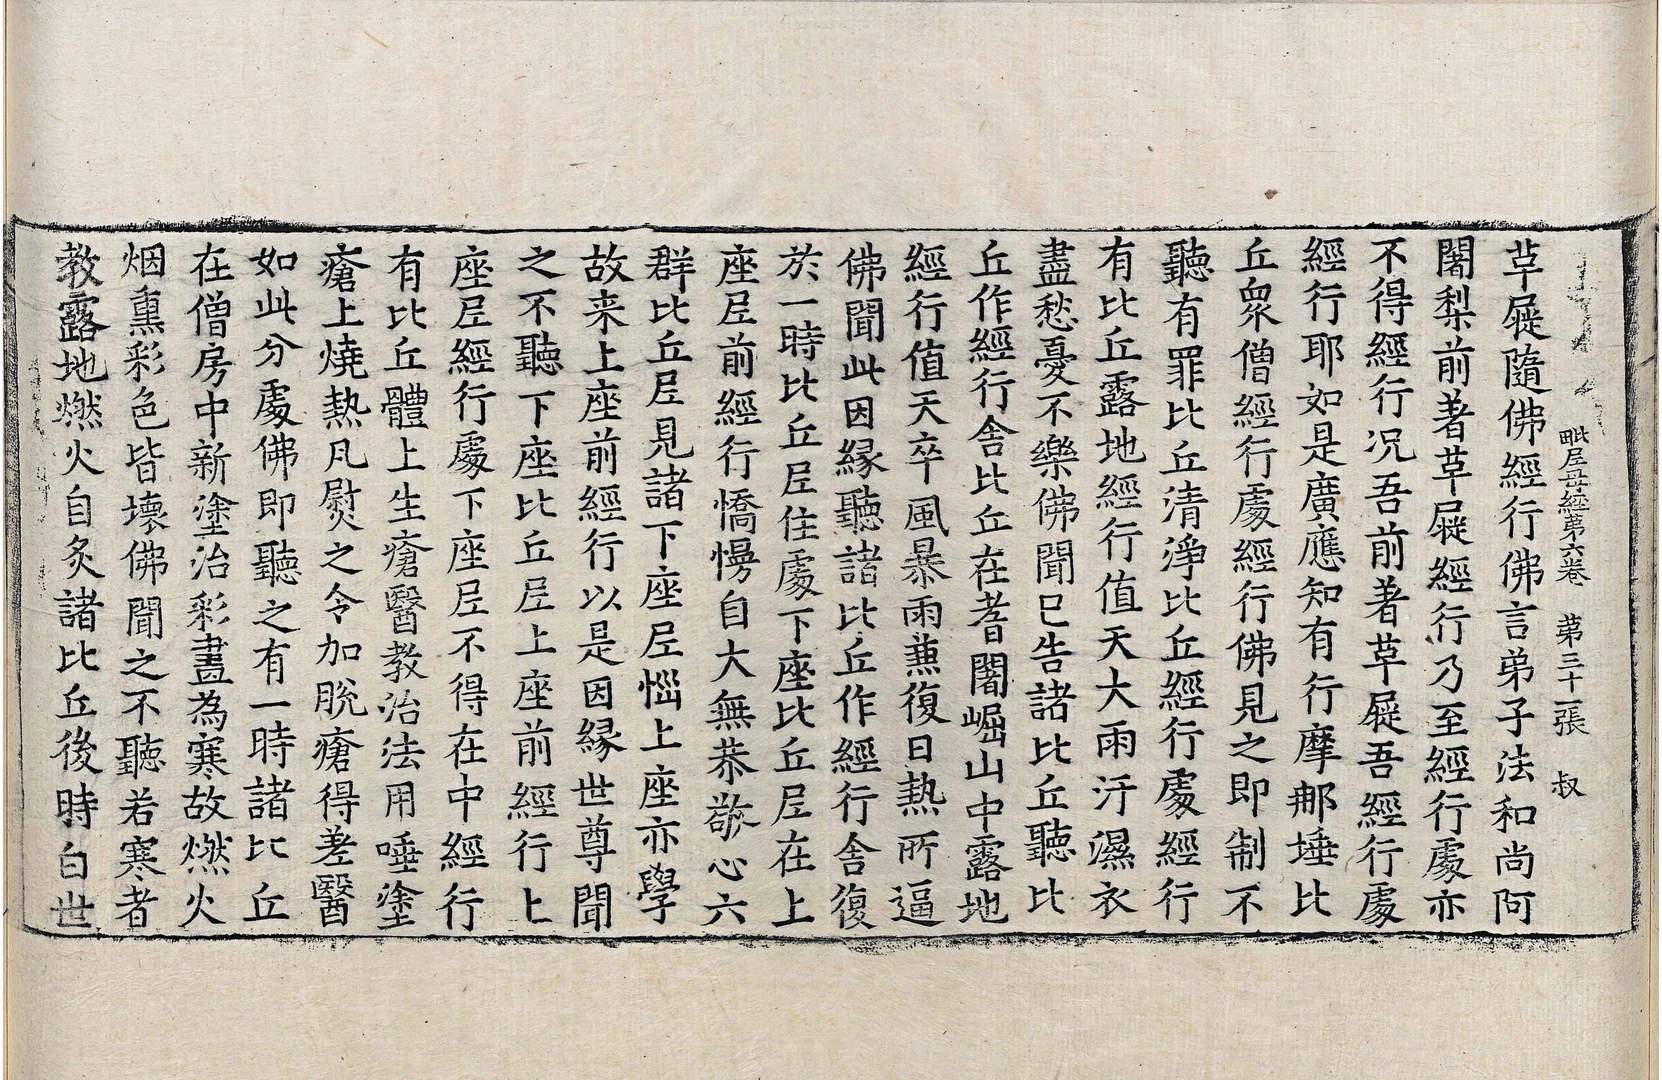 毗𡰱母經第六卷　第三十一張　叔
草屣隨佛經行佛言弟子法和尚阿
闍梨前著草屣經行乃至經行處亦
不得經行况吾前著草屣吾經行處
經行耶如是廣應知有行摩郍埵比
丘衆僧經行處經行佛見之即制不
聽有罪比丘清淨比丘經行處經行
有比丘露地經行值天大雨汙濕衣
盡愁憂不樂佛聞已告諸比丘聽比
丘作經行舍比丘在耆闍崛山中露地
經行值天卒風暴雨蕙復日熱所逼
佛聞此因緣聽諸比丘作經行舍復
於一時比丘𡰱住處下座比丘𡰱在上
座𡰱前經行憍慢自大無恭敬心六
群比丘𡰱見諸下座𡰱惱上座亦學
故来上座前經行以是因緣世尊聞
之不聽下座比丘𡰱上座前經行上
座𡰱經行處下座𡰱不得在中經行
有比丘體上生瘡醫教治法用唾塗
瘡上燒熱凡熨之令加脫瘡得差醫
如此分處佛即聽之有一時諸比丘
在僧房中新塗治彩畫為寒故燃火
烟熏彩色皆壞佛聞之不聽若寒者
教露地燃火自炙諸比丘後時白世